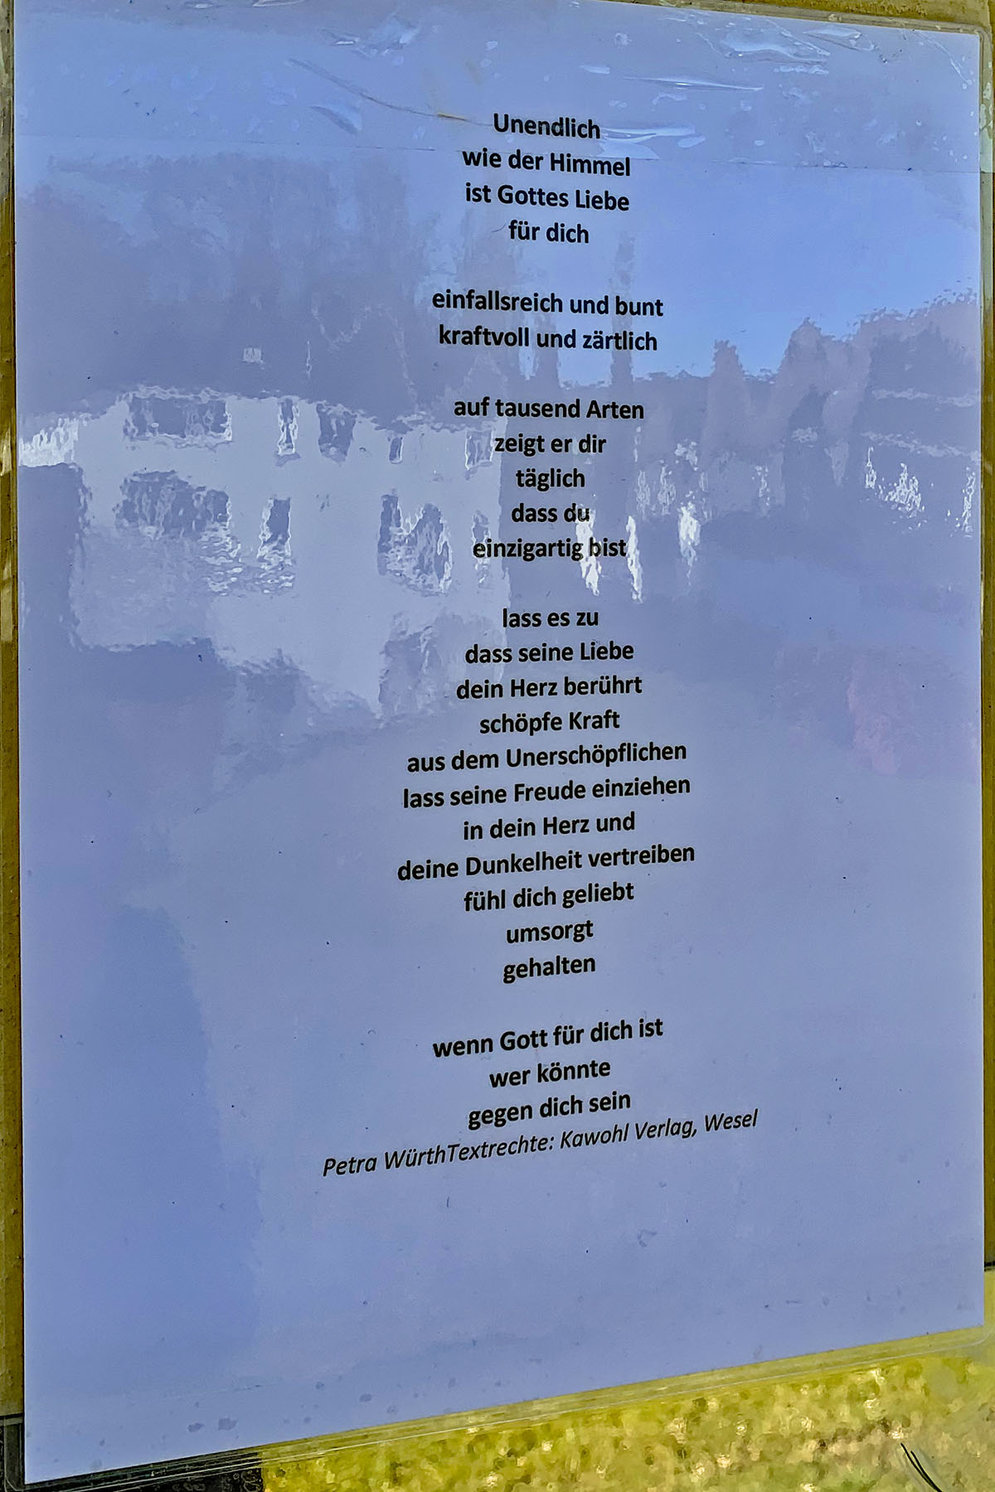 Unendlich
wie der Himmel
ist Gottes Liebe
für dich
einfallsreich und bunt
kraftvoll und zärtlich
auf tausend Arten
zeigt er dir
täglich
dass du
einzigartig bist
lass es zu
dass seine Liebe
dein Herz berührt
schöpfe Kraft
aus dem Unerschöpflichen
lass seine Freude einziehen
in dein Herz und
deine Dunkelheit vertreiben
fühl dich geliebt
umsorgt
gehalten
wenn Gott für dich ist
wer könnte
gegen dich sein
Petra WürthTextrechte: Kawohl Verlag, Wesel